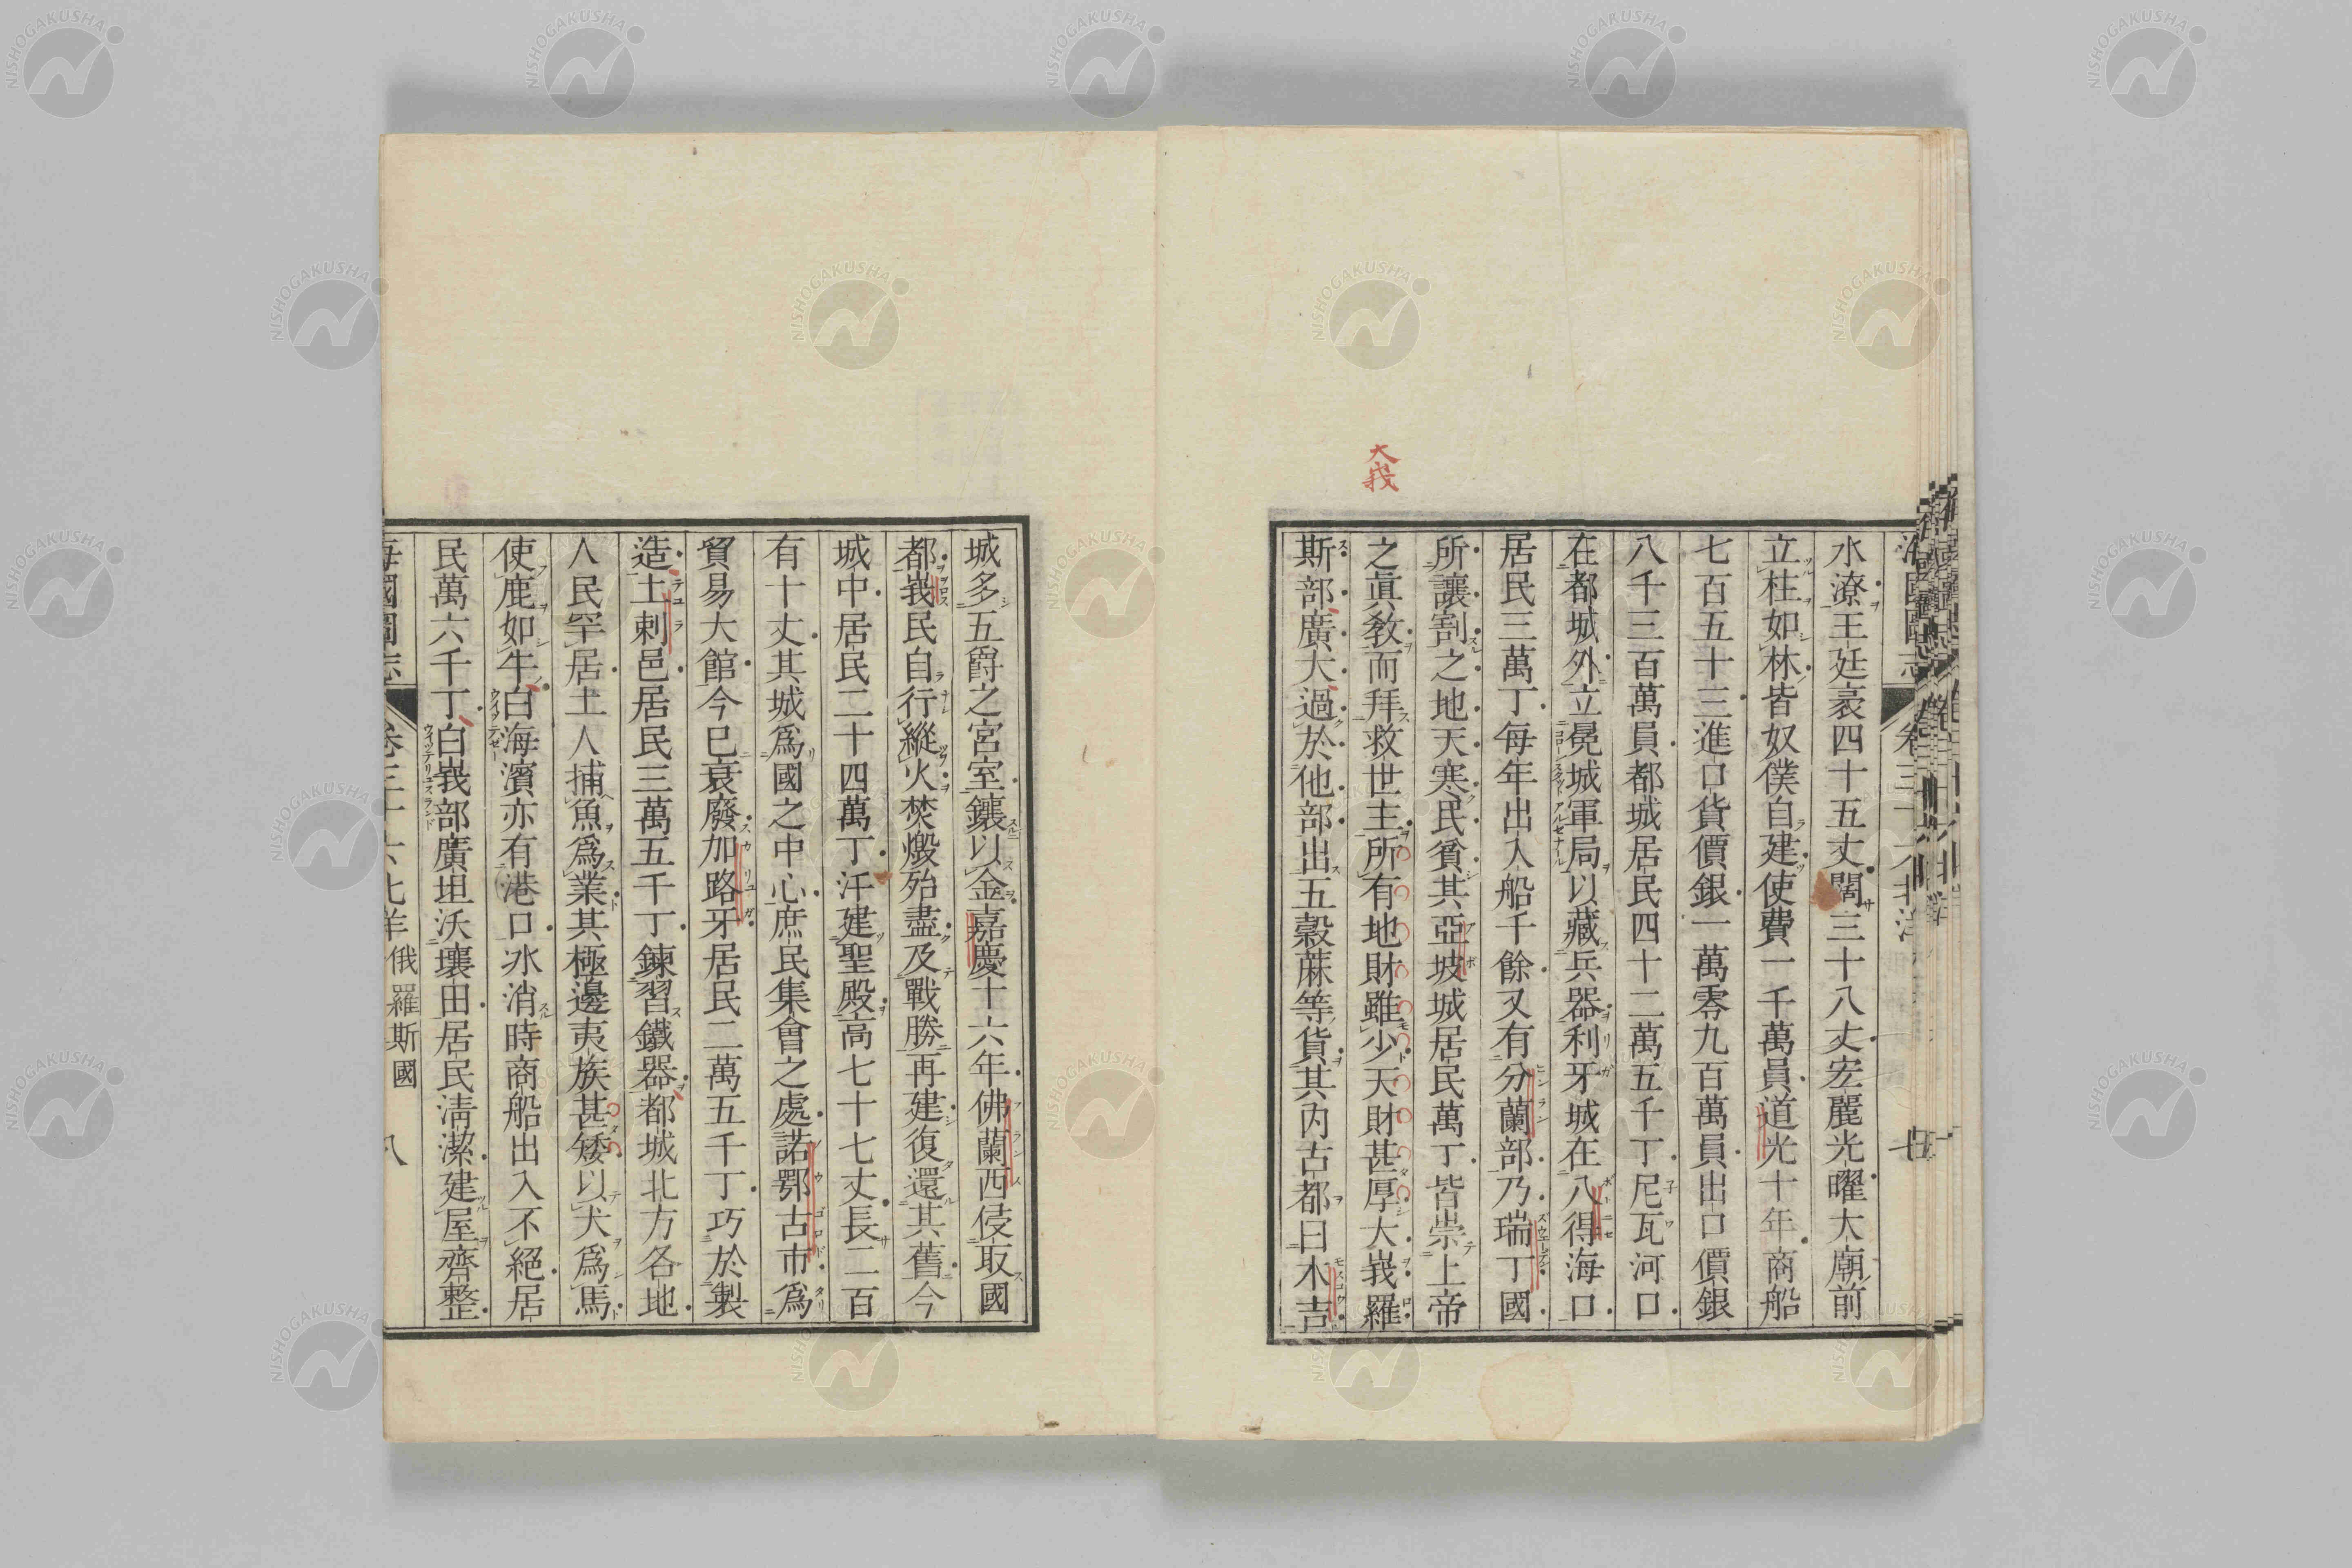 大峩
水潦王廷袤四十五丈闊三十八丈宏麗光曜大廟前
立柱如林皆奴僕自建使費一千萬員道光十年商船
七百五十三進口貨價銀一萬零九百萬員出口價銀
八千三百萬員都城居民四十二萬五千丁尼瓦河口
在都城外立晃城軍局以藏兵器利牙城在八得海口
居民三萬丁每年出入船千餘又有分蘭部乃瑞丁國
所讓割之地天寒民貧其亞坡城居民萬丁皆崇上帝
之眞教而拜救世主所有地財雖少天財甚厚大峩羅
斯部廣大過於他部出五穀蔴等貨其內古都曰木吉
城多五爵之宮室鑲以金嘉慶十六年佛蘭西侵取國
都峩民自行縱火焚燬殆盡及戰勝再建復還其舊今
城中居民二十四萬丁汗建聖殿高七十七丈長二百
有十丈其城爲國之中心庶民集會之處諾鄂古市爲
貿易大館今已衰廢加路牙居民二萬五千丁巧於製
造土剌邑居民三萬五千丁鍊習鐵器都城北方各地
人民罕居土人捕魚爲業其極邊夷族甚矮以犬爲馬
使鹿如牛白海濱亦有港口冰消時商船出入不絕居
民萬六千丁白峩部廣坦沃壤田居民淸潔建屋齊整
海國圖志 卷三十六 北洋 俄羅斯國 八
NISHOGAKUSHA